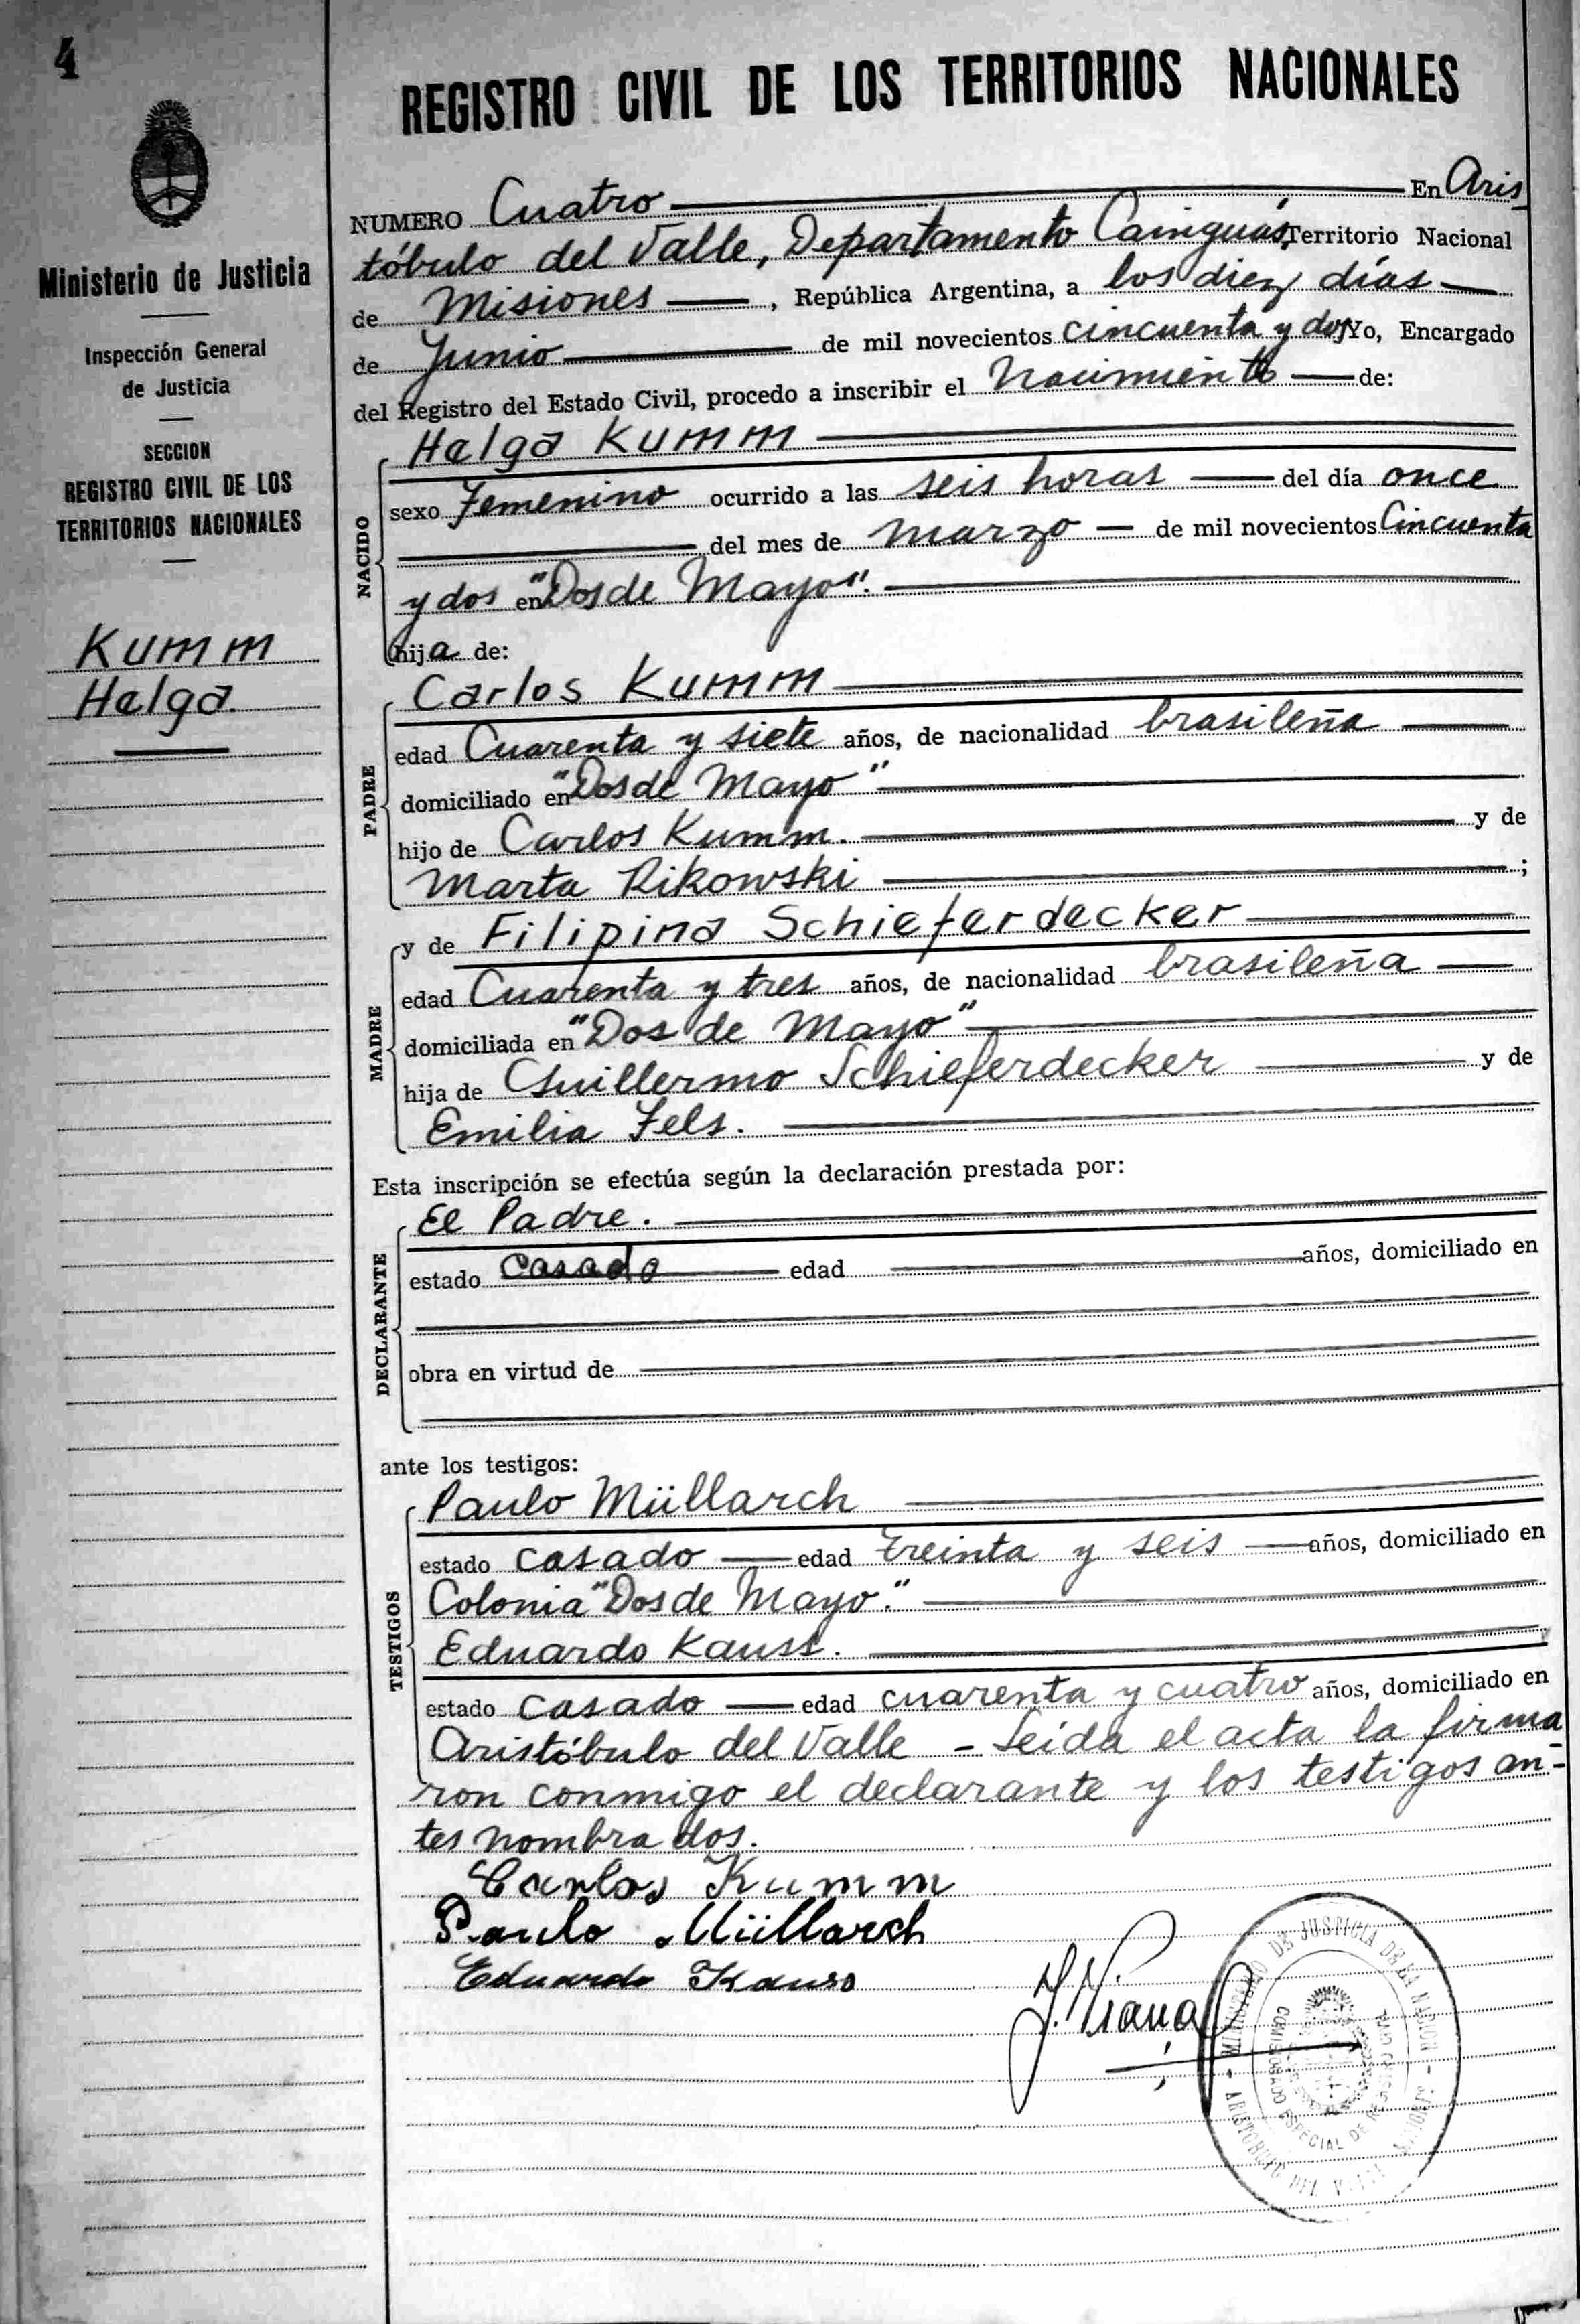 4
Ministerio de Justicia
Inspección General
de Justicia
SECCION
REGISTRO CIVIL DE LOS
TERRITORIOS NACIONALES
Kumm
Helga
REGISTRO CIVIL DE LOS TERRITORIOS NACIONALES
NUMERO Cuatro En Aris
tóbulo del Valle, Departamento Cainguás, Territorio Nacional
de Misiones, República Argentina, a los diez días
de Junio de mil novecientos cincuenta y dos Yo, Encargado
del Registro del Estado Civil, procedo a inscribir el Nacimiento de:
NACIDO
Helga Kumm
sexo Femenino ocurrido a las seis horas del día once
del mes de marzo de mil novecientos Cincuenta
y dos en "Dos de Mayo".
hija de:
PADRE
Carlos Kumm
edad Cuarenta y siete años, de nacionalidad brasileña
domiciliado en "Dos de Mayo"
hijo de Carlos Kumm. y de
Marta Rikowski ;
MADRE
y de Filipina Schieferdecker
edad Cuarenta y tres años, de nacionalidad brasileña
domiciliada en "Dos de Mayo"
hija de Guillermo Schieferdecker y de
Emilia Fels.
Esta inscripción se efectúa según la declaración prestada por:
DECLARANTE
El Padre.
estado Casado edad años, domiciliado en
obra en virtud de
ante los testigos:
TESTIGOS
Paulo Müllarch
estado casado edad treinta y seis años, domiciliado en
Colonia "Dos de Mayo."
Eduardo Kauss. y
estado casado edad cuarenta y cuatro años, domiciliado en
Aristóbulo del Valle - Leida el acta la firma
ron conmigo el declarante y los testigos an-
tes nombrados.
Carlos Kumm
Paulo Müllarch
Eduardo Kauss
J. Viana
MINISTERIO DE JUSTICIA DE LA NACION
COMISIONADO ESPECIAL DE
ARISTOBULO DEL VALLE